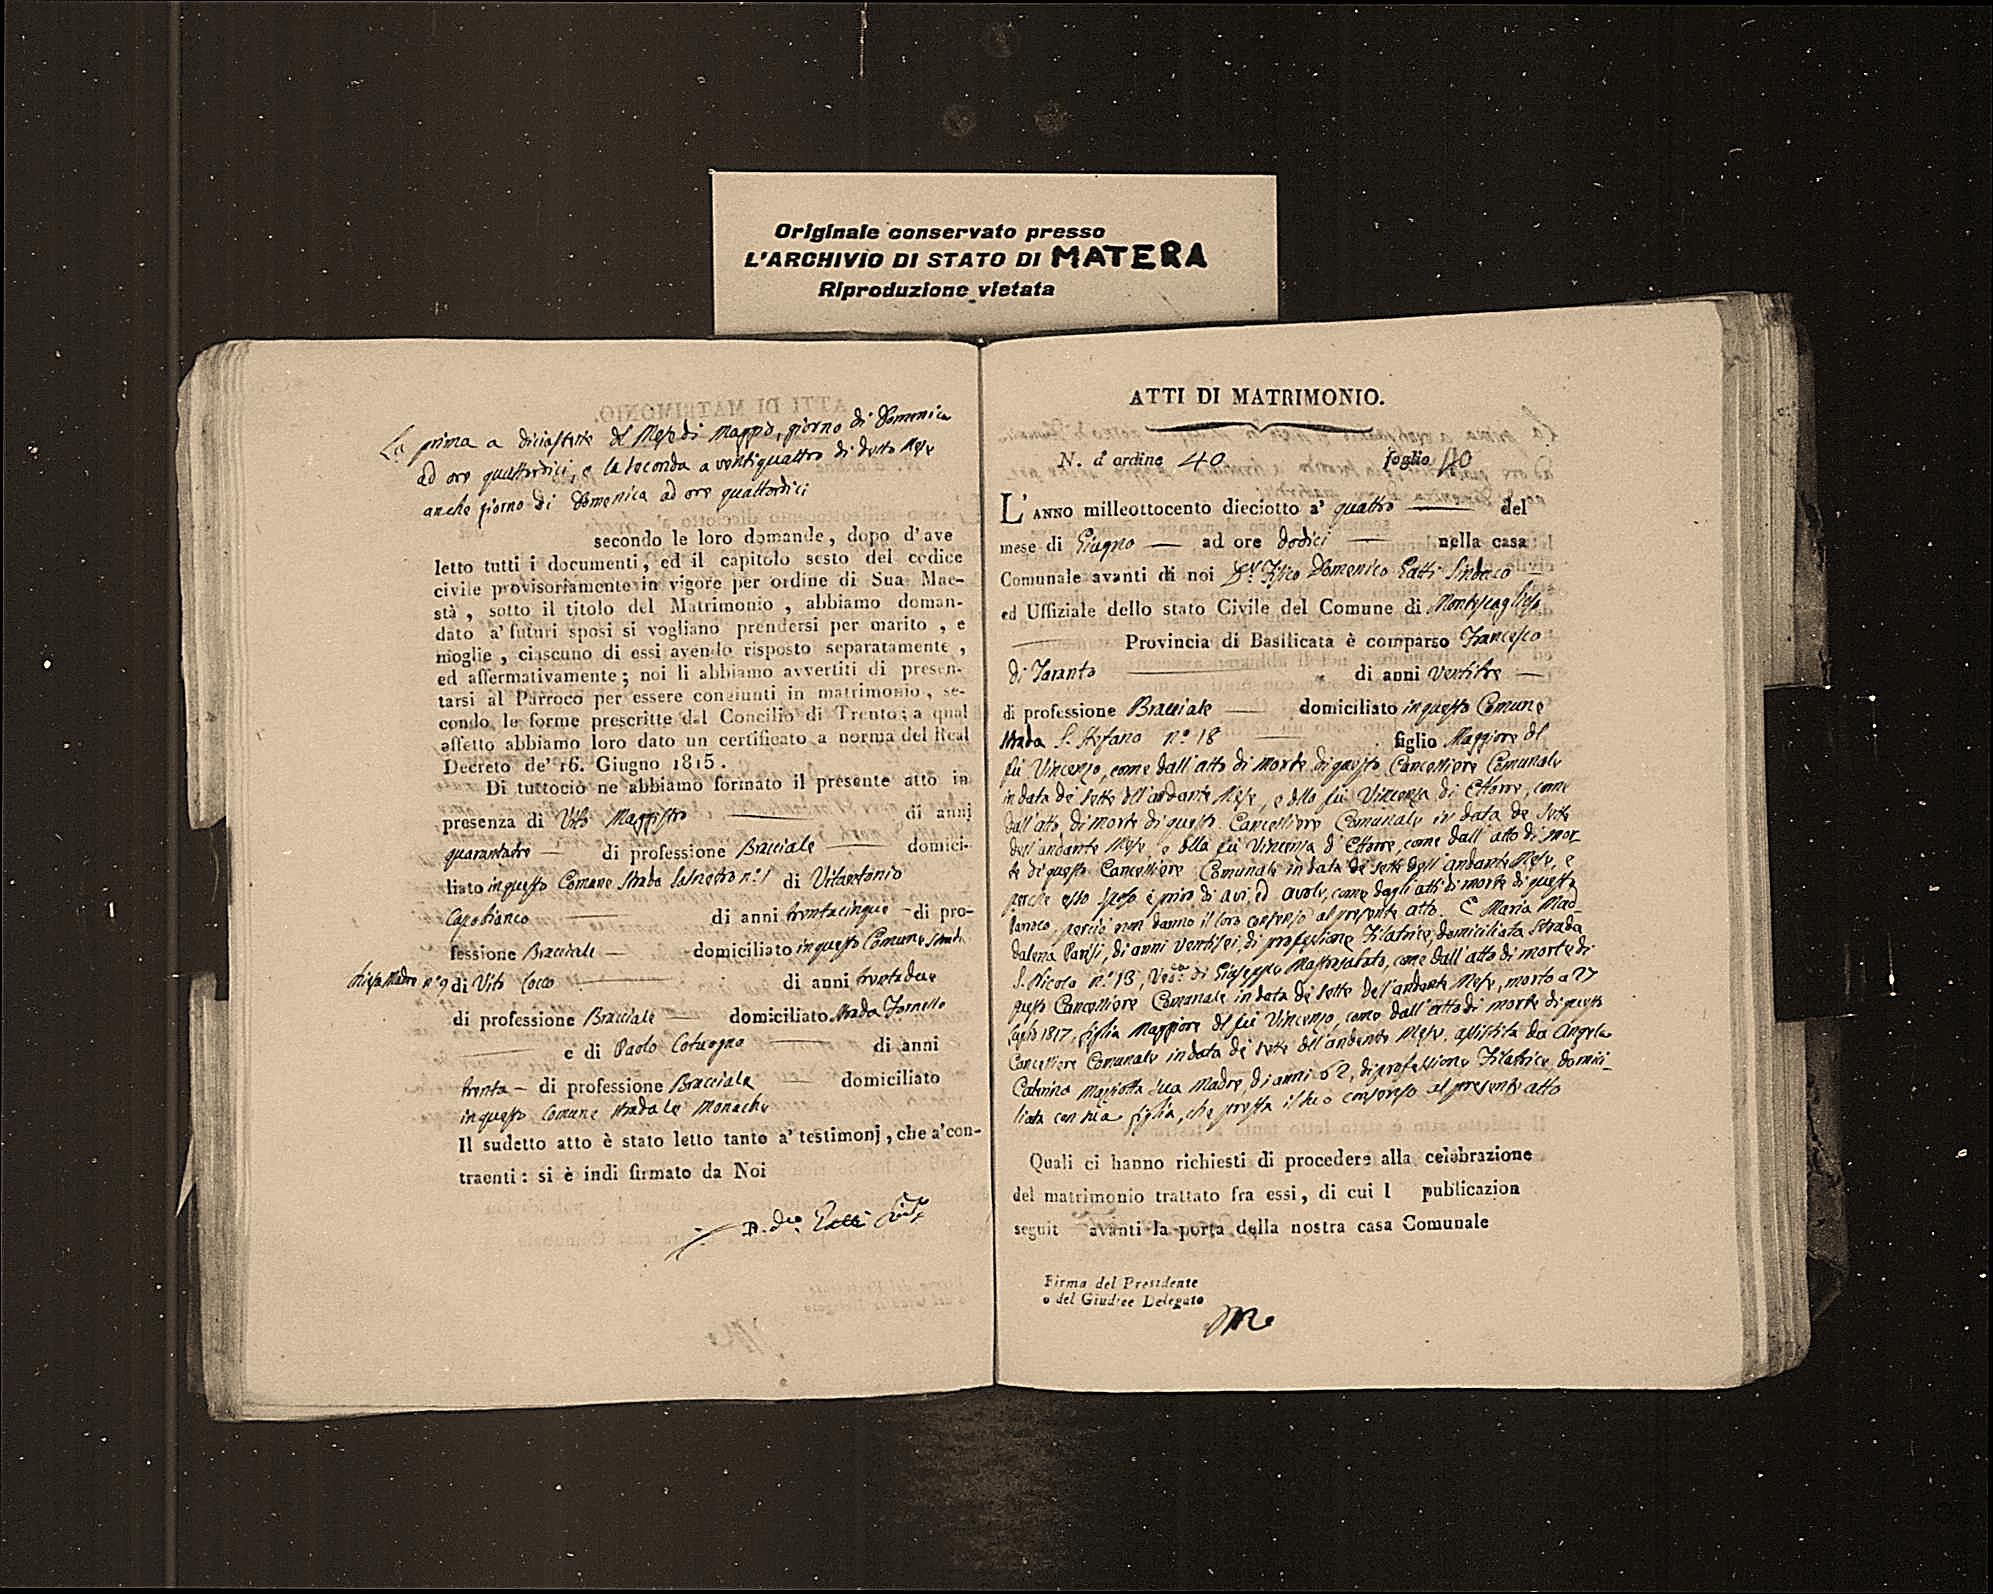 Originale conservato presso
L'ARCHIVIO DI STATO DI MATERA
Riproduzione vietata
La prima a diciassette del Mese di Maggio, giorno di Domenica
ad ore quattordici, e la seconda a ventiquattro di detto Mese
anche giorno di Domenica ad ore quattordici
secondo le loro domande, dopo d'ave
letto tutti i documenti, ed il capitolo sesto del codice
civile provisoriamente in vigore per ordine di Sua Mae-
stà, sotto il titolo del Matrimonio, abbiamo doman-
dato a' futuri sposi si vogliano prendersi per marito, e
moglie, ciascuno di essi avendo risposto separatamente,
ed affermativamente; noi li abbiamo avvertiti di presen-
tarsi al Parroco per essere congiunti in matrimonio, se-
condo le forme prescritte dal Concilio di Trento; a qual
affetto abbiamo loro dato un certificato a norma del Real
Decreto de' 16. Giugno 1815.
Di tuttociò ne abbiamo formato il presente atto in
presenza di Vito Maggistro di anni
quarantatre di professione Bracciale domici-
liato in questo Comune Strada n.° 1 di Vitantonio
Capobianco di anni trentacinque di pro-
fessione Bracciale domiciliato in questo Comune Strada
Chiesa Madre n.° 9 di Vito Cocco di anni trentadue
di professione Bracciale domiciliato Strada Fornello
e di Paolo Cotuogno di anni
trenta di professione Bracciale domiciliato
in questo Comune Strada le Monache
Il sudetto atto è stato letto tanto a' testimonj, che a'con-
traenti: si è indi firmato da Noi
ATTI DI MATRIMONIO.
N. d'ordine 40 foglio 40
L'ANNO milleottocento dieciotto a' quattro del
mese di Giugno ad ore dodici nella casa
Comunale avanti di noi Domenico Gatti Sindaco
ed Uffiziale dello stato Civile del Comune di Montescaglioso
Provincia di Basilicata è comparso Francesco
di Taranto di anni ventitre
di professione Bracciale domiciliato in questo Comune
Strada S. Stefano n.° 18 figlio Maggiore del
fu Vincenzo, come dall'atto di morte di questo Cancelliere Comunale
in data de' sette dell'andante Mese, e della fu Vincenza di Ettorre, come
dall'atto di morte di questo Cancelliere Comunale in data de sette
dell'andante Mese, e della fu Vincenza d'Ettorre, come dall'atto di mor
te di questo Cancelliere Comunale in data de' sette dell'andante Mese, e
perche esso sposo è privo di avi, ed avole, come dagli atti di morte di questo
Parroco, perciò non danno il loro consenso al presente atto. E Maria Mad
dalena Parisi, di anni ventisei, di professione Filatrice, domiciliata Strada
S. Nicola n.° 13, Ved.ª di Giuseppe Mastrosabato, come dall'atto di morte di
questo Cancelliere Comunale in data de' sette dell'andante Mese, morto a 27
Luglio 1817, figlia Maggiore del fu Vincenzo, come dall'atto di morte di questo
Cancelliere Comunale in data de' sette dell'andante Mese, assistita da Angela
Caterina Mazziotta sua Madre, di anni 62, di professione Filatrice, domici-
liata con sua figlia, che presta il suo consenso al presente atto
Quali ci hanno richiesti di procedere alla celebrazione
del matrimonio trattato fra essi, di cui l publicazion
seguit avanti la porta della nostra casa Comunale
Firma del Presidente
o del Giudice Delegato